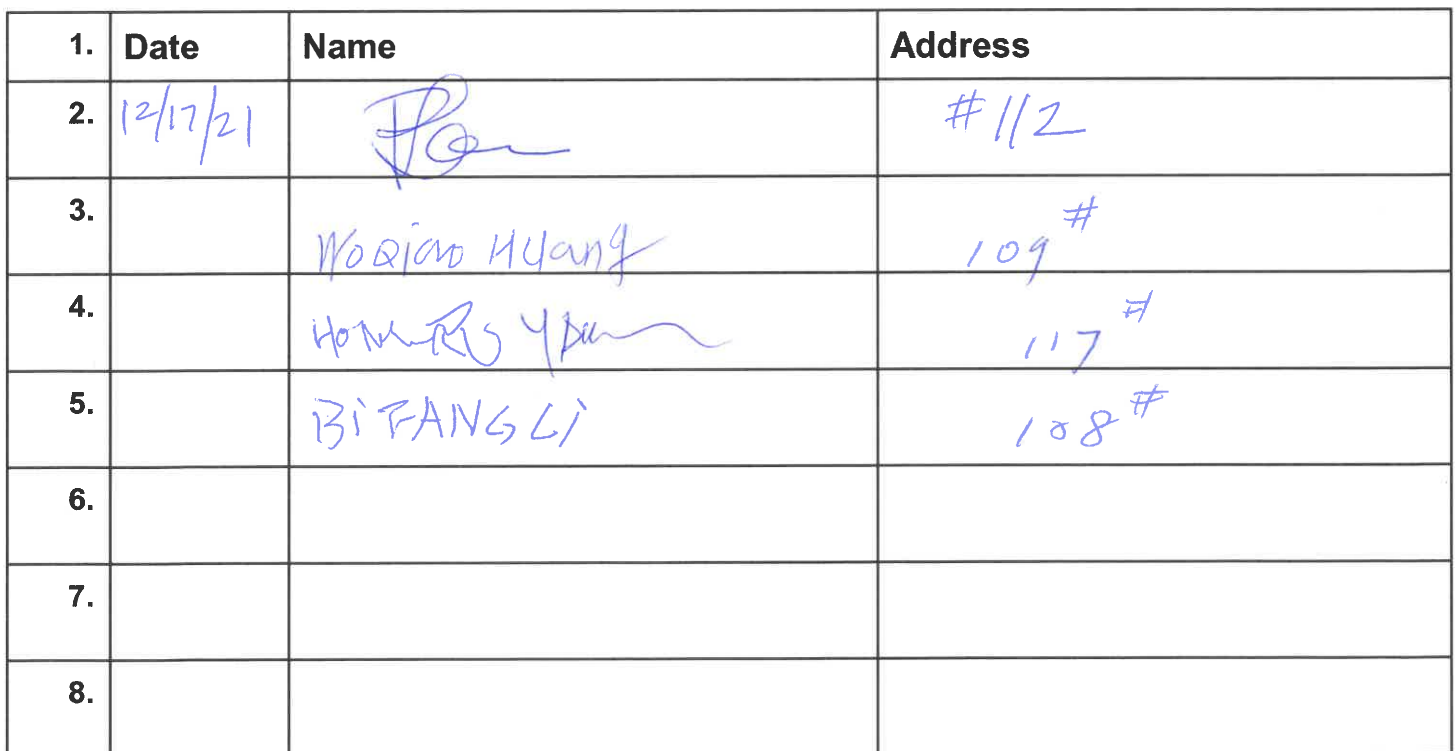 1. Date Name Address
2. 12/17/21 #112
3. Woqiao Huang 109#
4. 117#
5. BiFANG Li 108#
6.
7.
8.